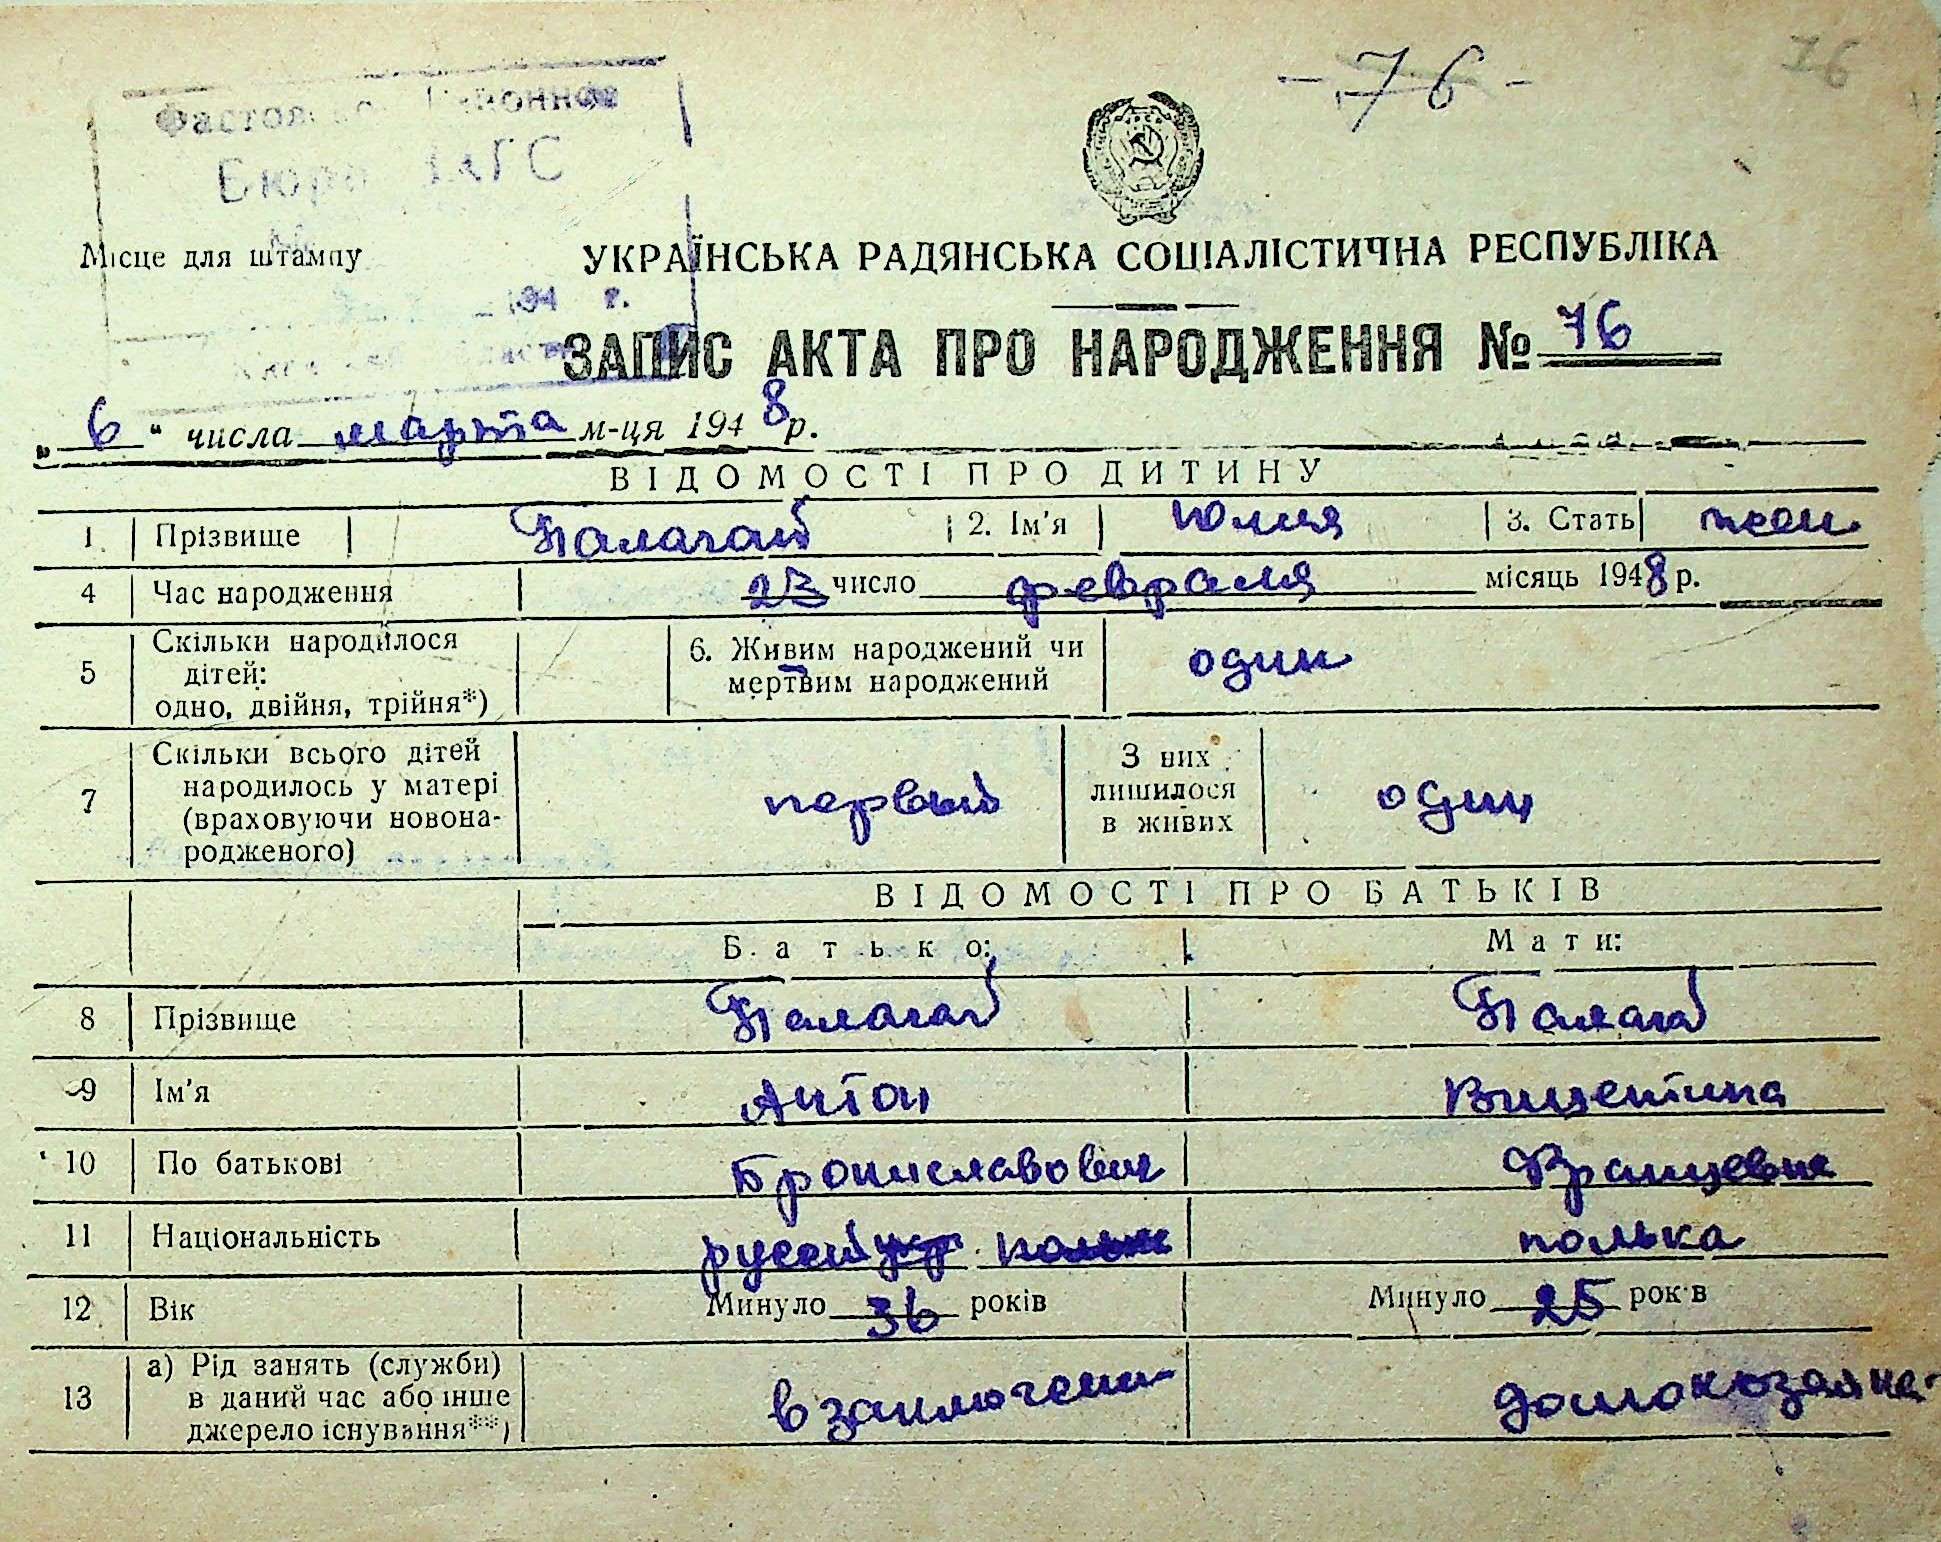 - 76 -
76
Бюро ЗАГС
Місце для штампу
УКРАЇНСЬКА РАДЯНСЬКА СОЦІАЛІСТИЧНА РЕСПУБЛІКА
194 г.
ЗАПИС АКТА ПРО НАРОДЖЕННЯ № 76
„ 6 “ числа марта м-ця 1948 р.
ВІДОМОСТІ ПРО ДИТИНУ
1 Прізвище Палагай 2. Ім'я Юлия 3. Стать жен
4 Час народження 23 число февраля місяць 1948 р.
5 Скільки народилося дітей: одно, двійня, трійня*) 6. Живим народжений чи мертвим народжений один
7 Скільки всього дітей народилось у матері (враховуючи новонародженого) первый З них лишилося в живих один
ВІДОМОСТІ ПРО БАТЬКІВ
Батько: Мати:
8 Прізвище Палагай Палагай
9 Ім'я Антон Винцентина
10 По батькові Брониславович Францевна
11 Національність русский укр. полька
12 Вік Минуло 36 років Минуло 25 рок в
13 а) Рід занять (служби) в даний час або інше джерело існування**) в заключени домохозяйка